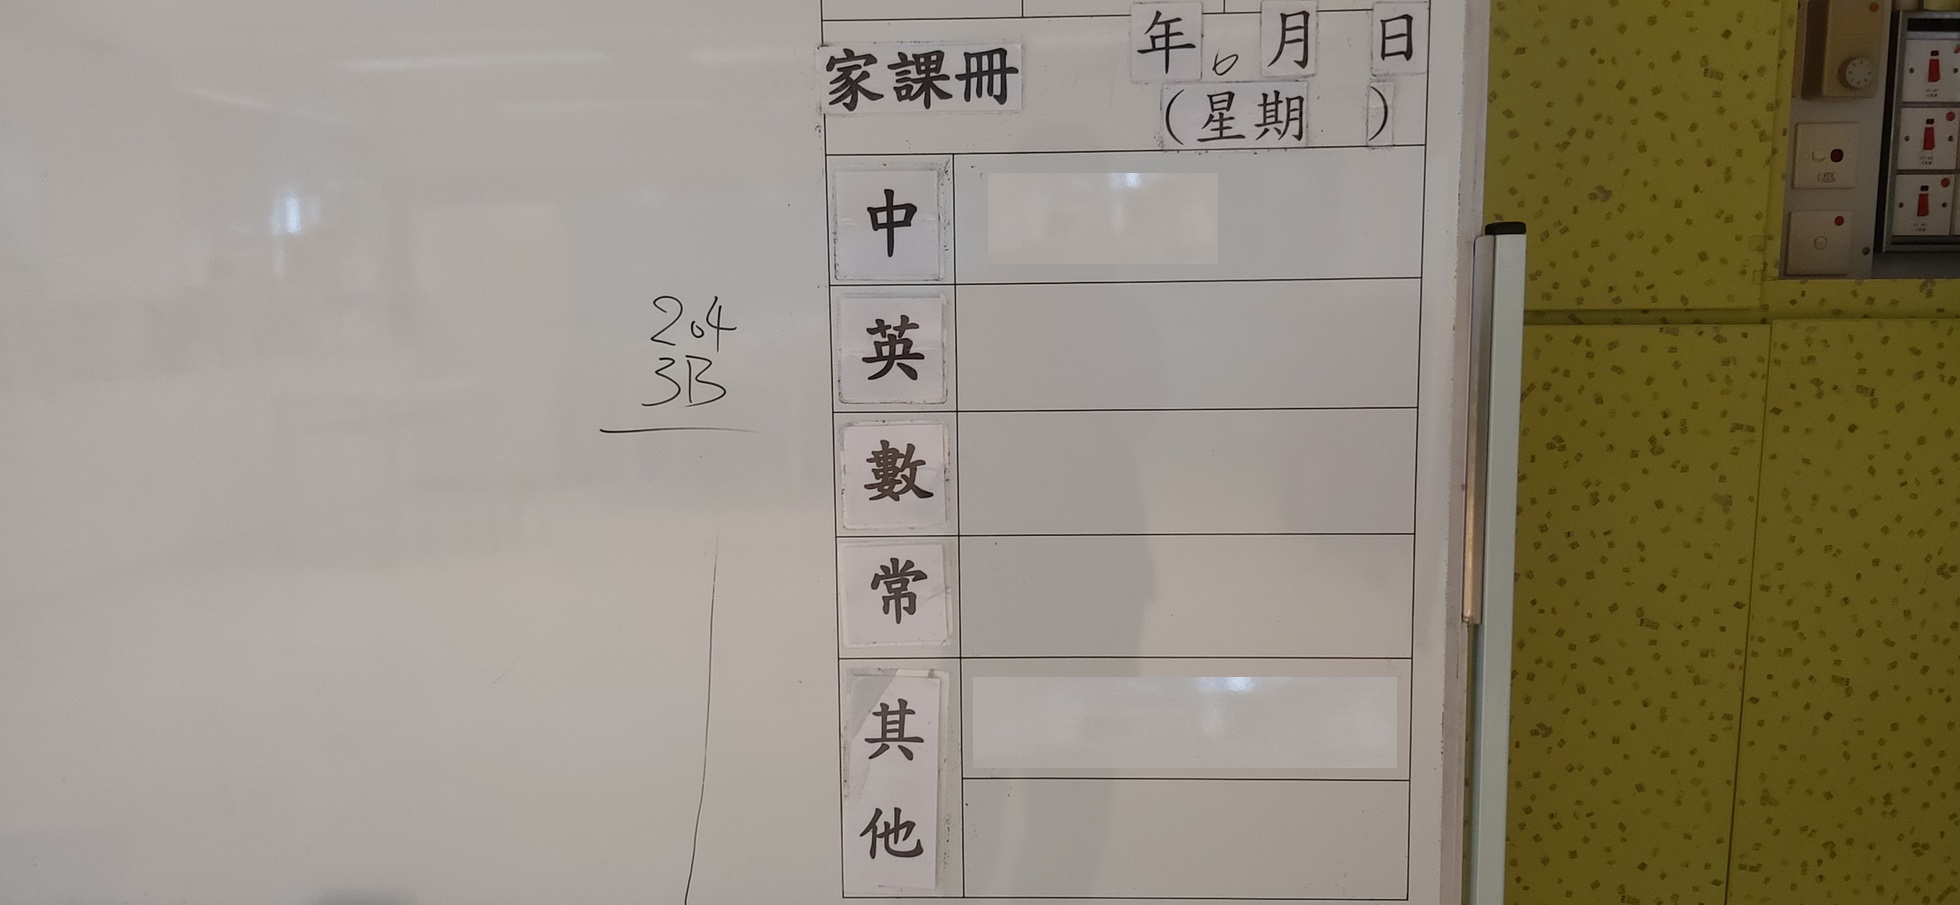 家課冊
年 6 月 日
(星期 )
中
英
數
常
其
他
204
3B